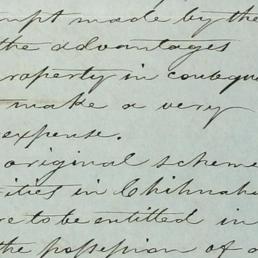 mpt made by the
the advantages
roperty in conseque
make a very
expense.
original scheme
ities in Chihuahu
re to be entitled in
the possession of a